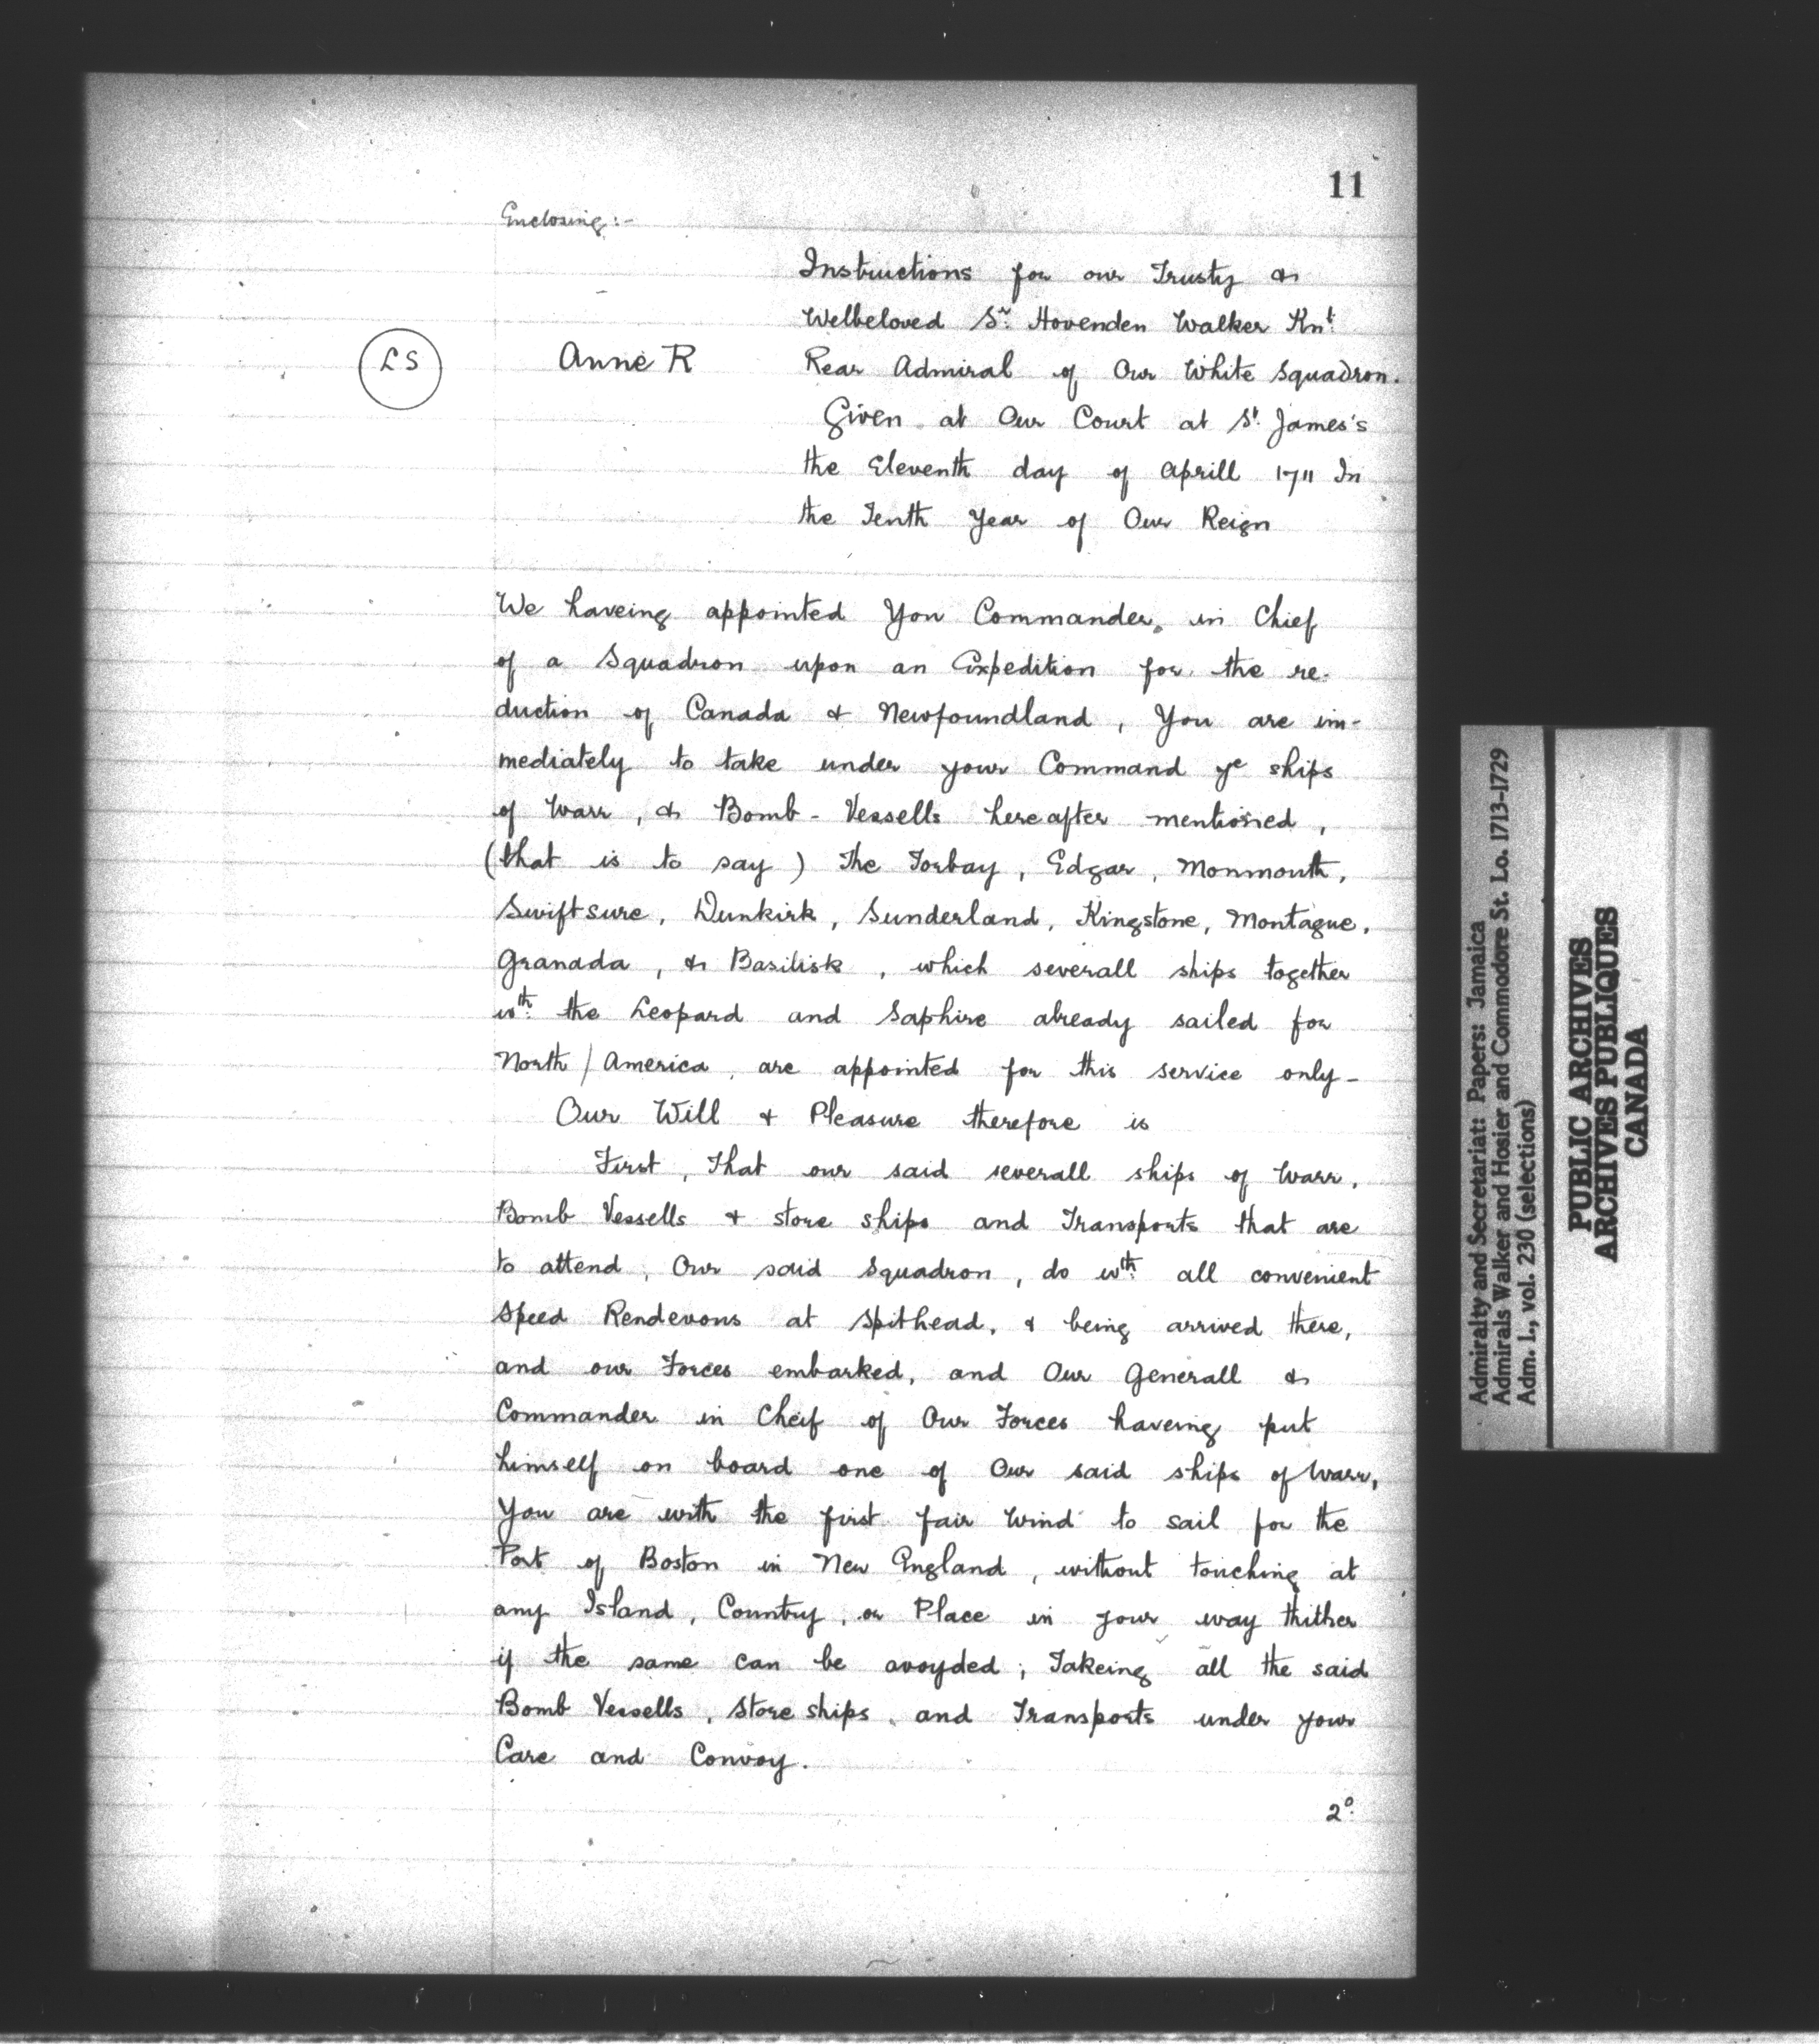 11
Enclosing:-
Instructions for our Trusty &
Welbeloved Sr. Hovenden Walker Knt.
(LS) Anne R Rear Admiral of Our White Squadron.
Given at Our Court at St. James's
the Eleventh day of Aprill 1711 In
the Tenth Year of Our Reign
We haveing appointed You Commander in Chief
of a Squadron upon an Expedition for the re-
duction of Canada & Newfoundland, You are im-
mediately to take under your Command ye ships
of Warr, & Bomb-Vessells hereafter mentioned,
(that is to say) The Torbay, Edgar, Monmouth,
Swiftsure, Dunkirk, Sunderland, Kingstone, Montague,
Granada, & Basilisk, which severall ships together
wth. the Leopard and Saphire already sailed for
North / America, are appointed for this service only-
Our Will & Pleasure therefore is
First, That our said severall ships of Warr,
Bomb Vessells & store ships and Transports that are
to attend, Our said Squadron, do wth. all convenient
Speed Rendevous at Spithead, & being arrived there,
and our Forces embarked, and Our Generall &
Commander in Cheif of Our Forces haveing put
himself on board one of Our said ships of Warr,
You are with the first fair Wind to sail for the
Port of Boston in New England, without touching at
any Island, Country, or Place in your way thither
if the same can be avoyded; Takeing all the said
Bomb Vessells, Store ships, and Transports under your
Care and Convoy.
2o.
Admiralty and Secretariat: Papers: Jamaica
Admirals Walker and Hosier and Commodore St. Lo. 1713-1729
Adm. 1., vol. 230 (selections)
PUBLIC ARCHIVES
ARCHIVES PUBLIQUES
CANADA